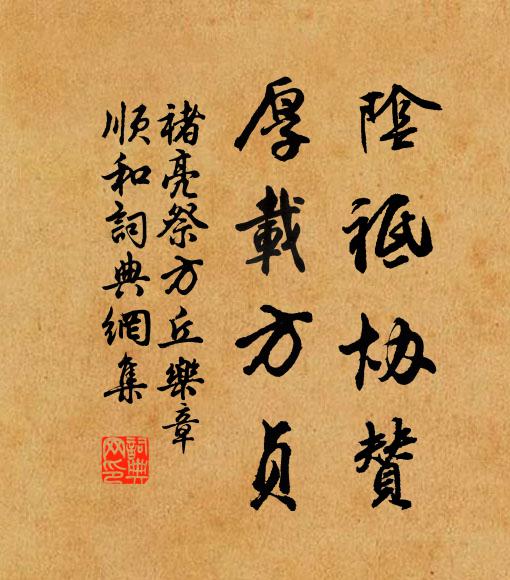 陰祗協賛
厚載方貞
褚亮祭方丘樂章
順和詞典網集
詞典网印